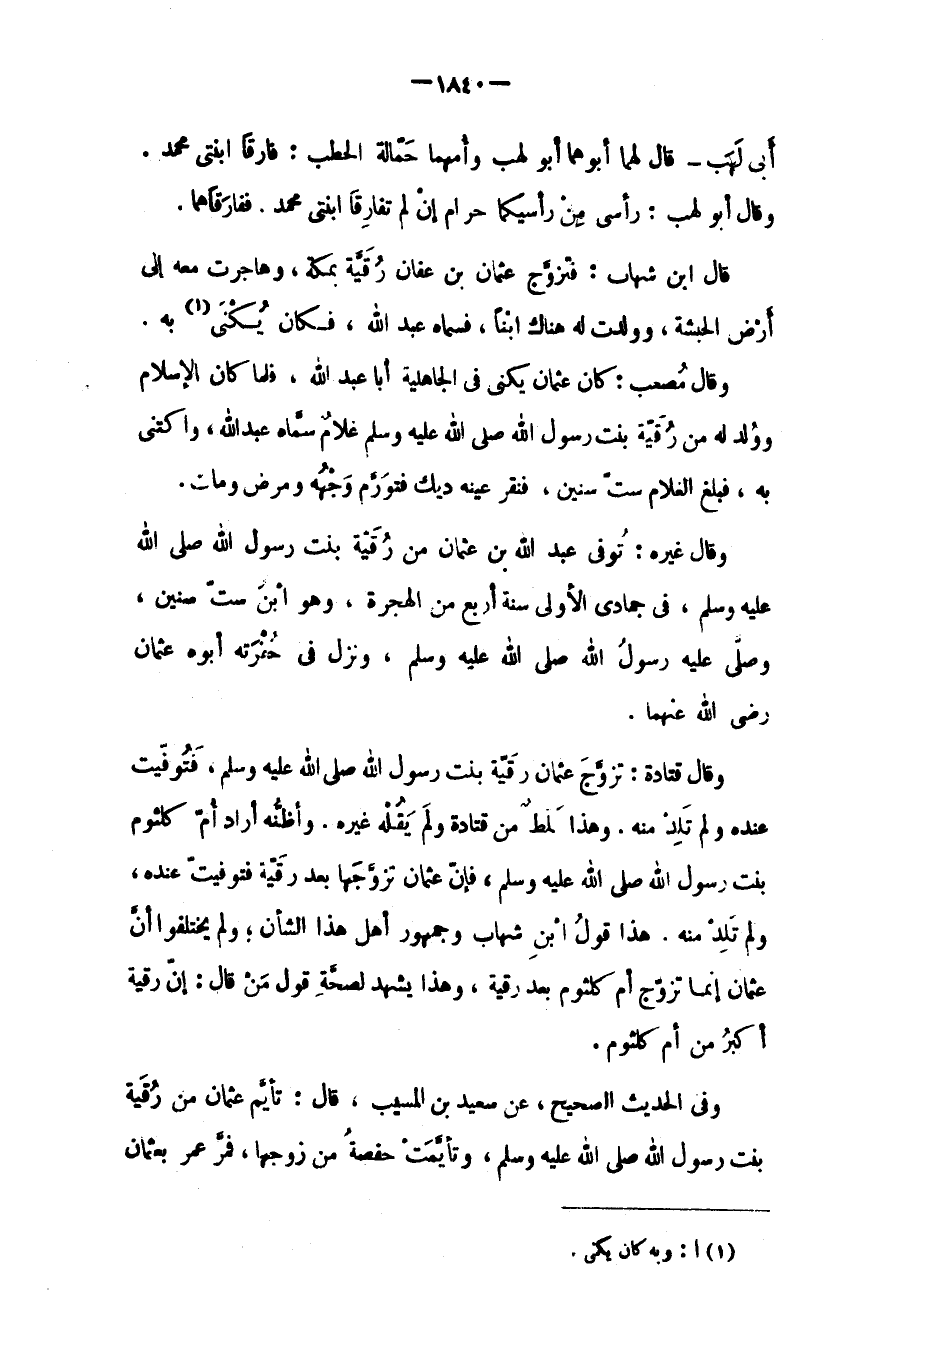 —١٨٤٠—
أَبى لَهَب – قال لهما أبوهما أبو لهب وأمهما حَمّالة الحطب : فارقَا ابنتى محمد .
وقال أبو لهب : رأسى مِنْ رأسيكما حرام إنْ لم تفارِقَا ابنتى محمد . ففارَقَاهما .
قال ابن شهاب : فتزوَّج عثمان بن عفان رُقَيَّة بمكة ، وهاجرت معه إلى
أَرْض الحبشة ، وولدت له هناك ابْناً ، فسماه عبد الله ، فـكان يُـكْنَى(١) به .
وقال مُصعب : كان عثمان يكنى فى الجاهلية أبا عبد الله ، فلما كان الإسلام
ووُلد له من رُقَيّة بنت رسول الله صلى الله عليه وسلم غلامٌ سمَّاه عبدالله ، واكتنى
به ، فبلغ الغلام ستّ سنين ، فنقر عينه ديك فتورَّم وَجْهُه ومرض ومات .
وقال غيره : تُوفى عبد الله بن عثمان من رُقَيْة بنت رسول الله صلى الله
عليه وسلم ، فى جمادى الأولى سنة أربع من الهجرة ، وهو ابْنَ ستّ سنين ،
وصلَّى عليه رسولُ الله صلى الله عليه وسلم ، ونزل فى حُفْرَته أبوه عثمان
رضى الله عنهما .
وقال قتادة : تزوَّجَ عثمان رقَيّة بنت رسول الله صلى الله عليه وسلم ، فَتُوفّيت
عنده ولم تَلِدْ منه . وهذا غلطٌ من قتادة ولَم يَقُلْه غيره . وأظنُّه أراد أُمّ كلثوم
بنت رسول الله صلى الله عليه وسلم ، فإنّ عثمان تزوَّجَها بعد رقَيّة فتوفيتّ عنده ،
ولم تَلِدْ منه . هذا قولُ ابْنِ شهاب وجمهور أهل هذا الشأن ؛ ولم يختلفوا أنَّ
عثمان إنمـا تزوّج أم كلثوم بعد رقية ، وهذا يشهد لصحَّةِ قول مَنْ قال : إنّ رقية
أكبرُ من أم كلثوم .
وفى الحديث الصحيح ، عن سعيد بن المسيب ، قال : تأيَّم عثمان من رُقَية
بنت رسول الله صلى الله عليه وسلم ، وتأيَّمَتْ حفصةُ من زوجها ، فمرَّ عمر بعثمان
(١) ا : وبه كان يكنى .